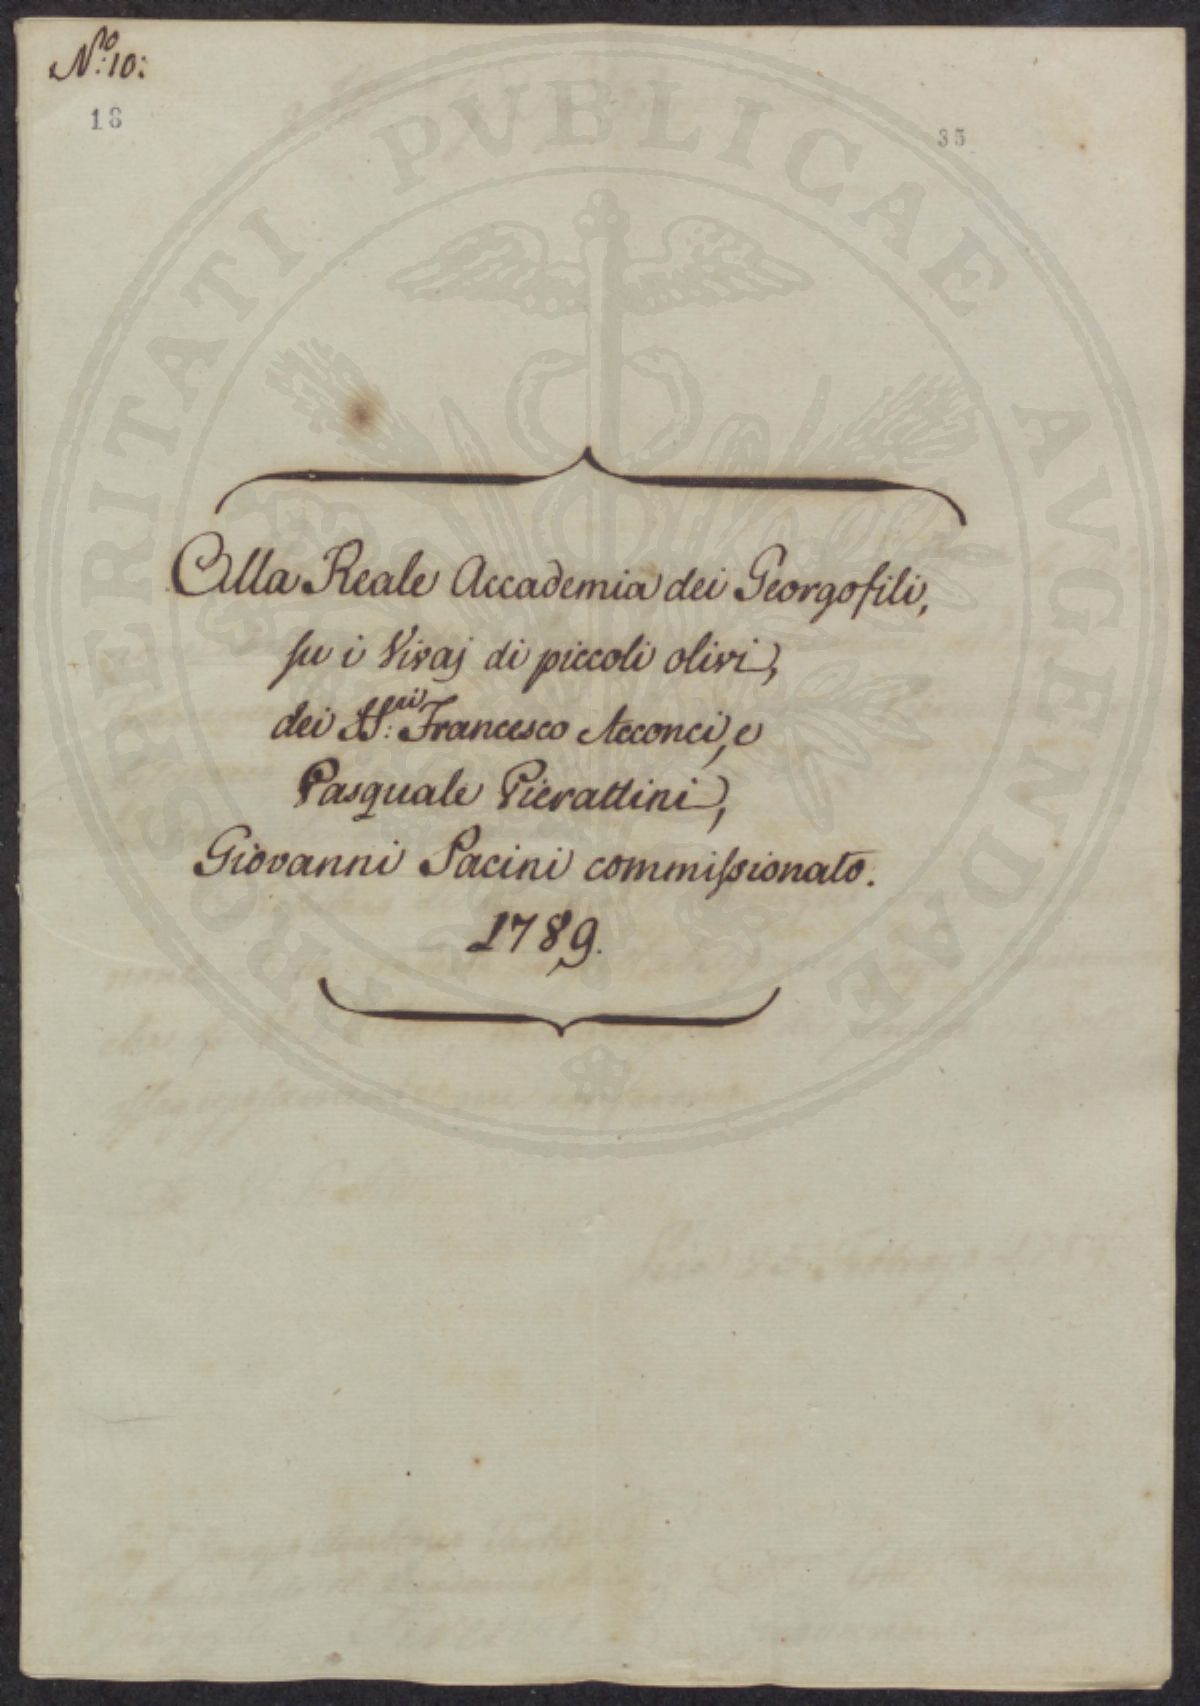 N.º 10:
18
35
Alla Reale Accademia dei Georgofili,
su i Vivaj di piccoli olivi,
dei SS.ri Francesco Acconci, e
Pasquale Pierattini,
Giovanni Pacini commissionato.
1789.
PROSPERITATI PVBLICAE AVGENDAE